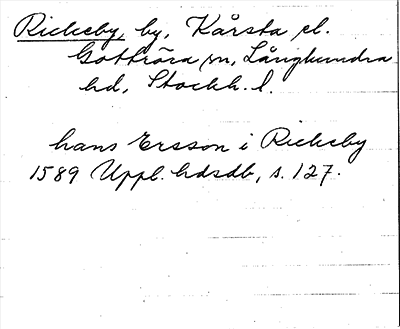 Rickeby, by, Kårsta el.
Gottröra sn, Långhundra
hd, Stockh. l.
hans Ersson i Rickeby
1589 Uppl. hdsdb, s. 127.